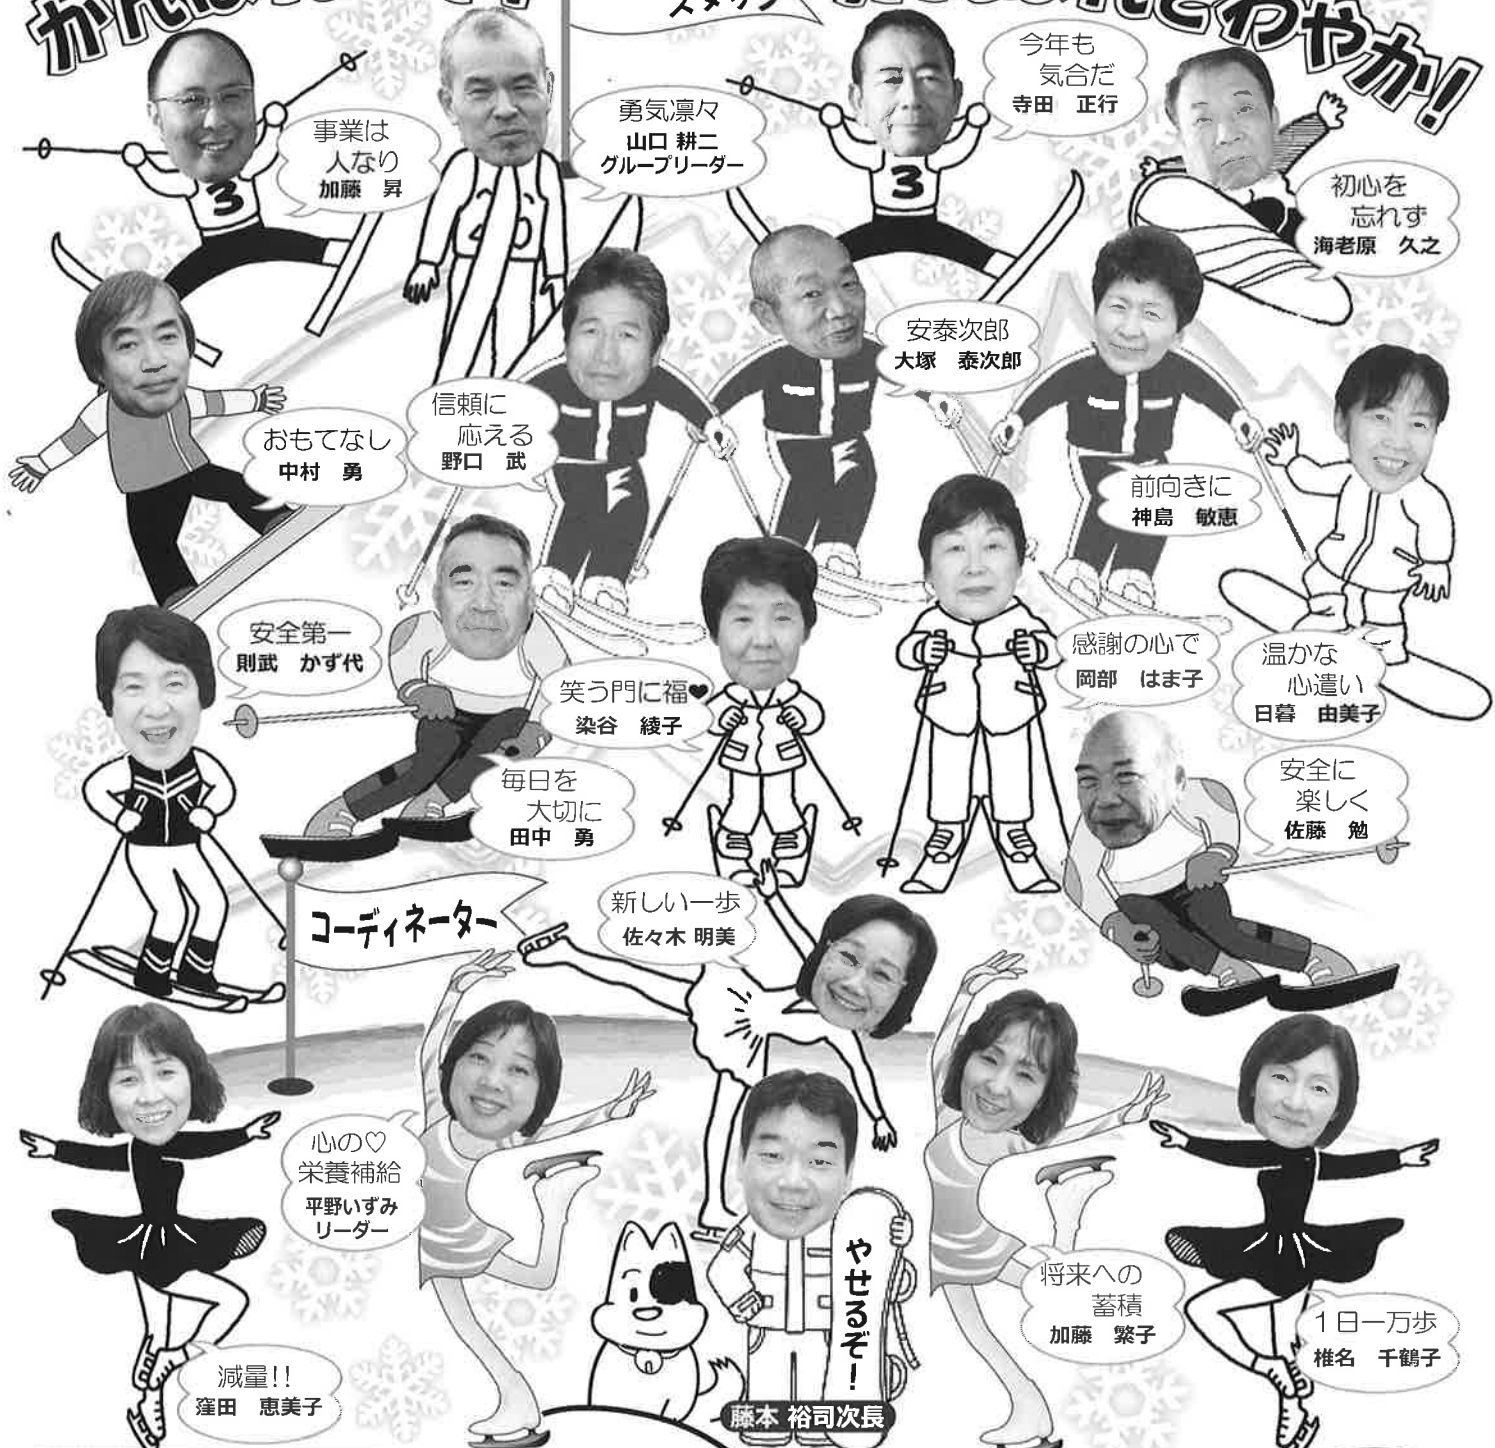 スタッフ
わやか!
今年も
気合だ
寺田 正行
事業は
人なり
加藤 昇
勇気凛々
山口 耕二
グループリーダー
初心を
忘れず
海老原 久之
安泰次郎
大塚 泰次郎
おもてなし
中村 勇
信頼に
応える
野口 武
前向きに
神島 敏恵
安全第一
則武 かず代
笑う門に福♥
染谷 綾子
感謝の心で
岡部 はま子
温かな
心遣い
日暮 由美子
毎日を
大切に
田中 勇
安全に
楽しく
佐藤 勉
コーディネーター
新しい一歩
佐々木 明美
心の♡
栄養補給
平野いずみ
リーダー
やせるぞ!
将来への
蓄積
加藤 繁子
1日一万歩
椎名 千鶴子
減量!!
窪田 恵美子
藤本 裕司次長